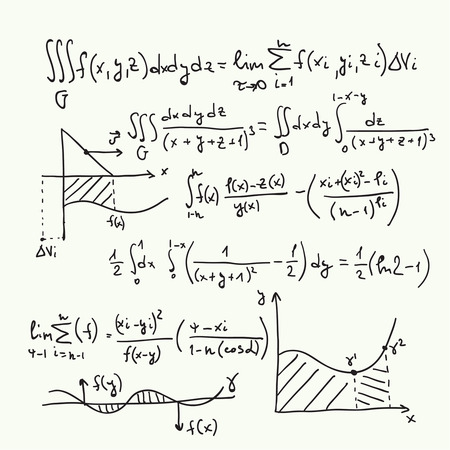 ∭_G f(x,y,z)dxdydz = lim_{τ→0} ∑_{i=1}^{n} f(xi,yi,zi)ΔVi
∭_G dxdydz/(x+y+z+1)^3 = ∬_D dxdy ∫_0^{1-x-y} dz/(x+y+z+1)^3
x
f(x)
ΔVi
∫_{1-n}^{n} f(x) (p(x)-z(x))/y(x) - ((xi+(xi)^2-Pi)/(n-1)^{Pi})
1/2 ∫_0^1 dx ∫_0^{1-x} (1/(x+y+1)^2 - 1/2) dy = 1/2 (ln2-1)
lim_{4-1} ∑_{i=n-1}^{n} (f) = (xi-yi)^2/f(x-y) ((4-xi)/(1-n(cosα))
y
γ'
γ^2
x
f(y)
γ
f(x)